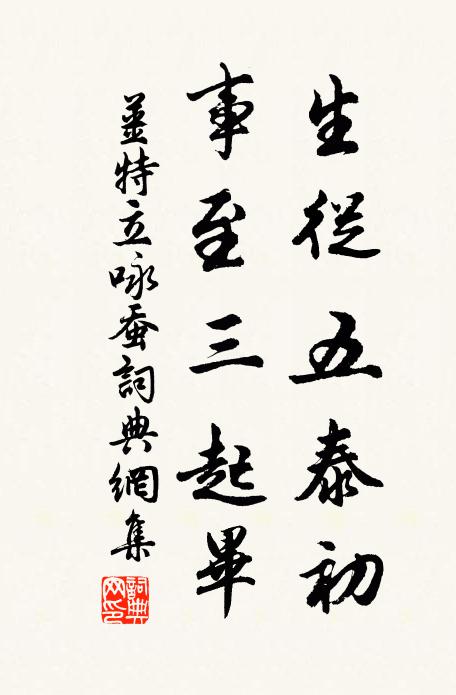 生從五泰初
事至三起畢
姜特立咏蚕詞典網集
詞典網印